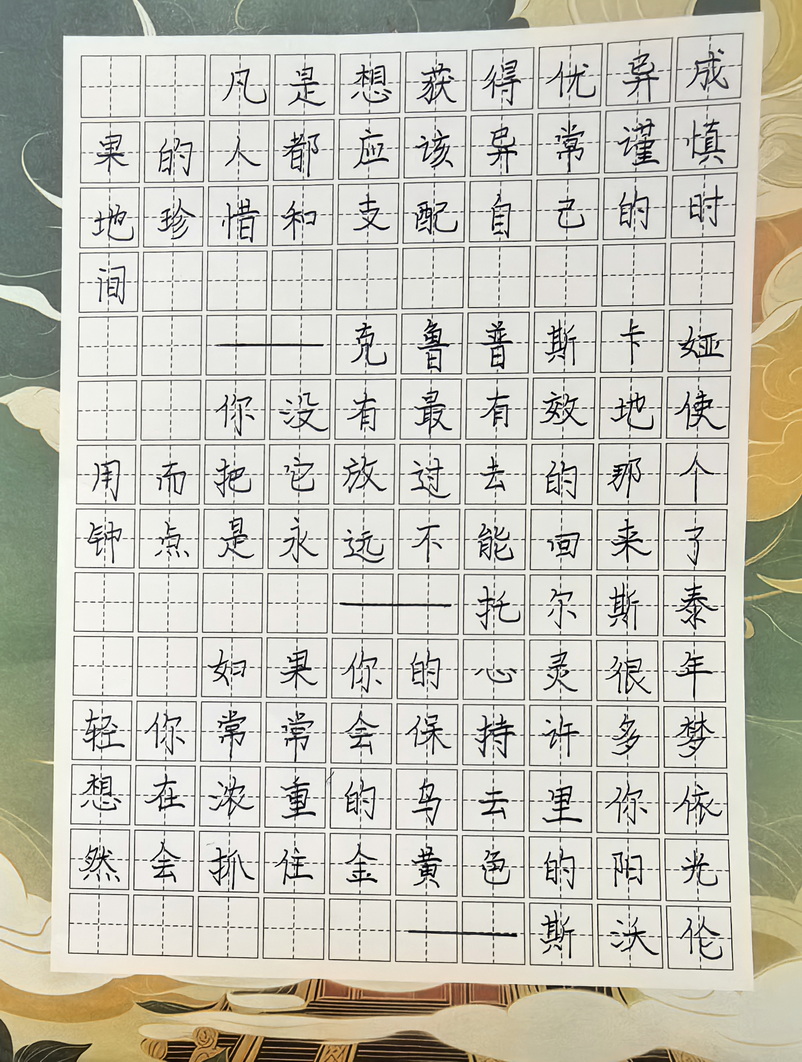 凡是想获得优异成
果的人都应该异常谨慎
地珍惜和支配自己的时
间
——克鲁普斯卡娅
你没有最有效地使
用而把它放过去的那个
钟点是永远不能回来了
——托尔斯泰
如果你的心灵很年
轻你常常会保持许多梦
想在浓重的乌去里你依
然会抓住金黄色的阳光
——斯沃伦